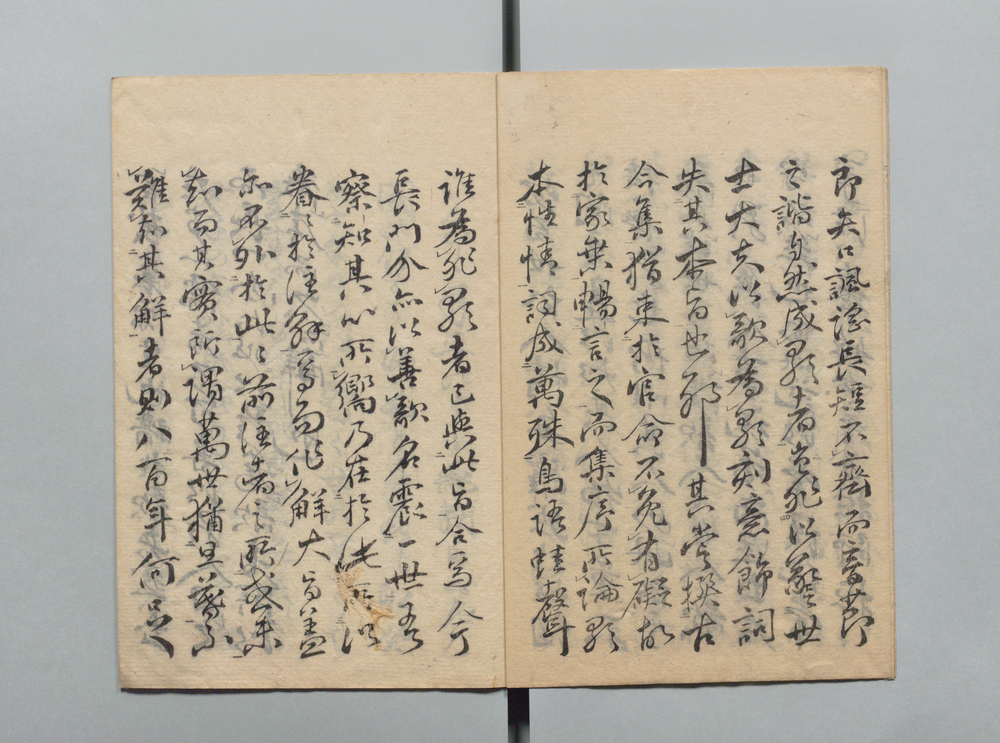 即矢口諷謠長短不齊而音節
之諧自然成歌者豈非以鑒世
士大夫以歌為歌刻意飾詞
失其本旨也耶 其嘗撰古
今集猶束於官命不免有礙故
於家無暢言之而集序所論歌
本性情詞成萬殊鳥語蛙聲
誰為非歌者已與此旨合焉今
長門介亦以善歌名震一世吾
察知其心所嚮乃在於此所以
眷々於注解焉而作解大旨蓋
亦不外於此々前注者之所或未
知而其實所謂萬世猶旦暮
難知其解者則八百年何足